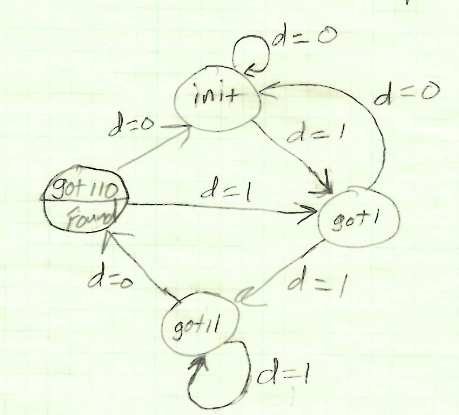 d=0
init
d=0
d=0
d=1
got110
Found
d=1
got1
d=0
d=1
got11
d=1